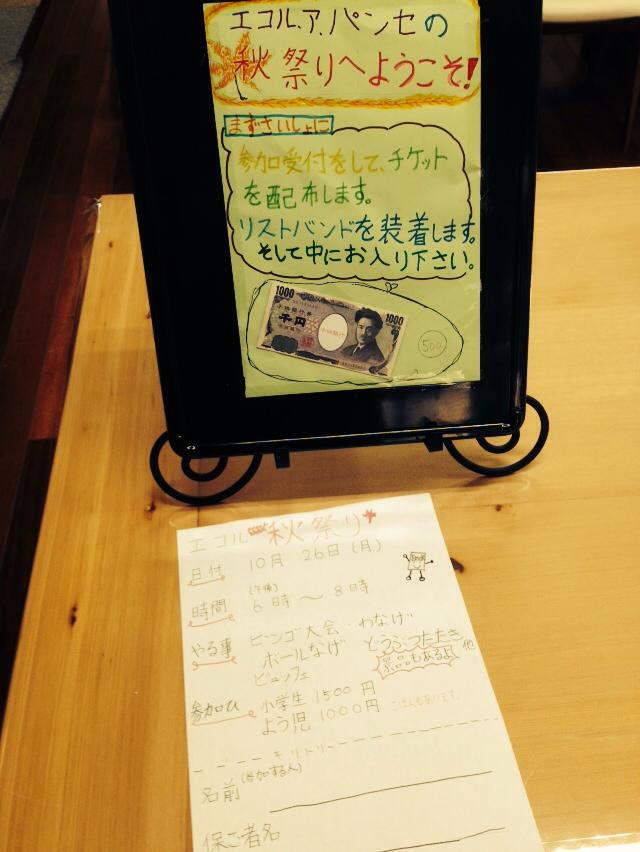 エコル.ア.パンセの
秋祭りへようこそ!
まずさいしょに
参加受付をして、チケット
を配布します。
リストバンドを装着します。
そして中にお入り下さい。
1000
千円
1000
500
エコル秋祭り
日付 10月 26日(月)
時間 (午後) 6時～8時
やる事 ビンゴ大会・わなげ
ボールなげ どうぶつたたき 他
ビュッフェ 景品もあるよ
参加ひ 小学生 1500円
よう児 1000円 ごはんもあります。
キリトリ
名前(参加する人)
保ご者名